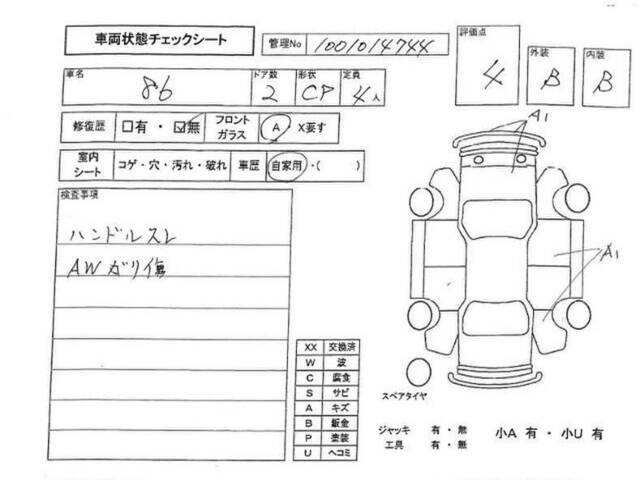 車両状態チェックシート
管理No 1001014744
評価点 4
外装 B
内装 B
車名 86
ドア数 2
形状 CP
定員 4人
修復歴 □有・☑無
フロントガラス A・X要す
室内シート コゲ・穴・汚れ・破れ
車歴 自家用・( )
検査事項
ハンドルスレ
AWガリ傷
A1
A1
XX 交換済
W 波
C 腐食
S サビ
A キズ
B 鈑金
P 塗装
U ヘコミ
スペアタイヤ
ジャッキ 有・無
工具 有・無
小A 有・小U 有